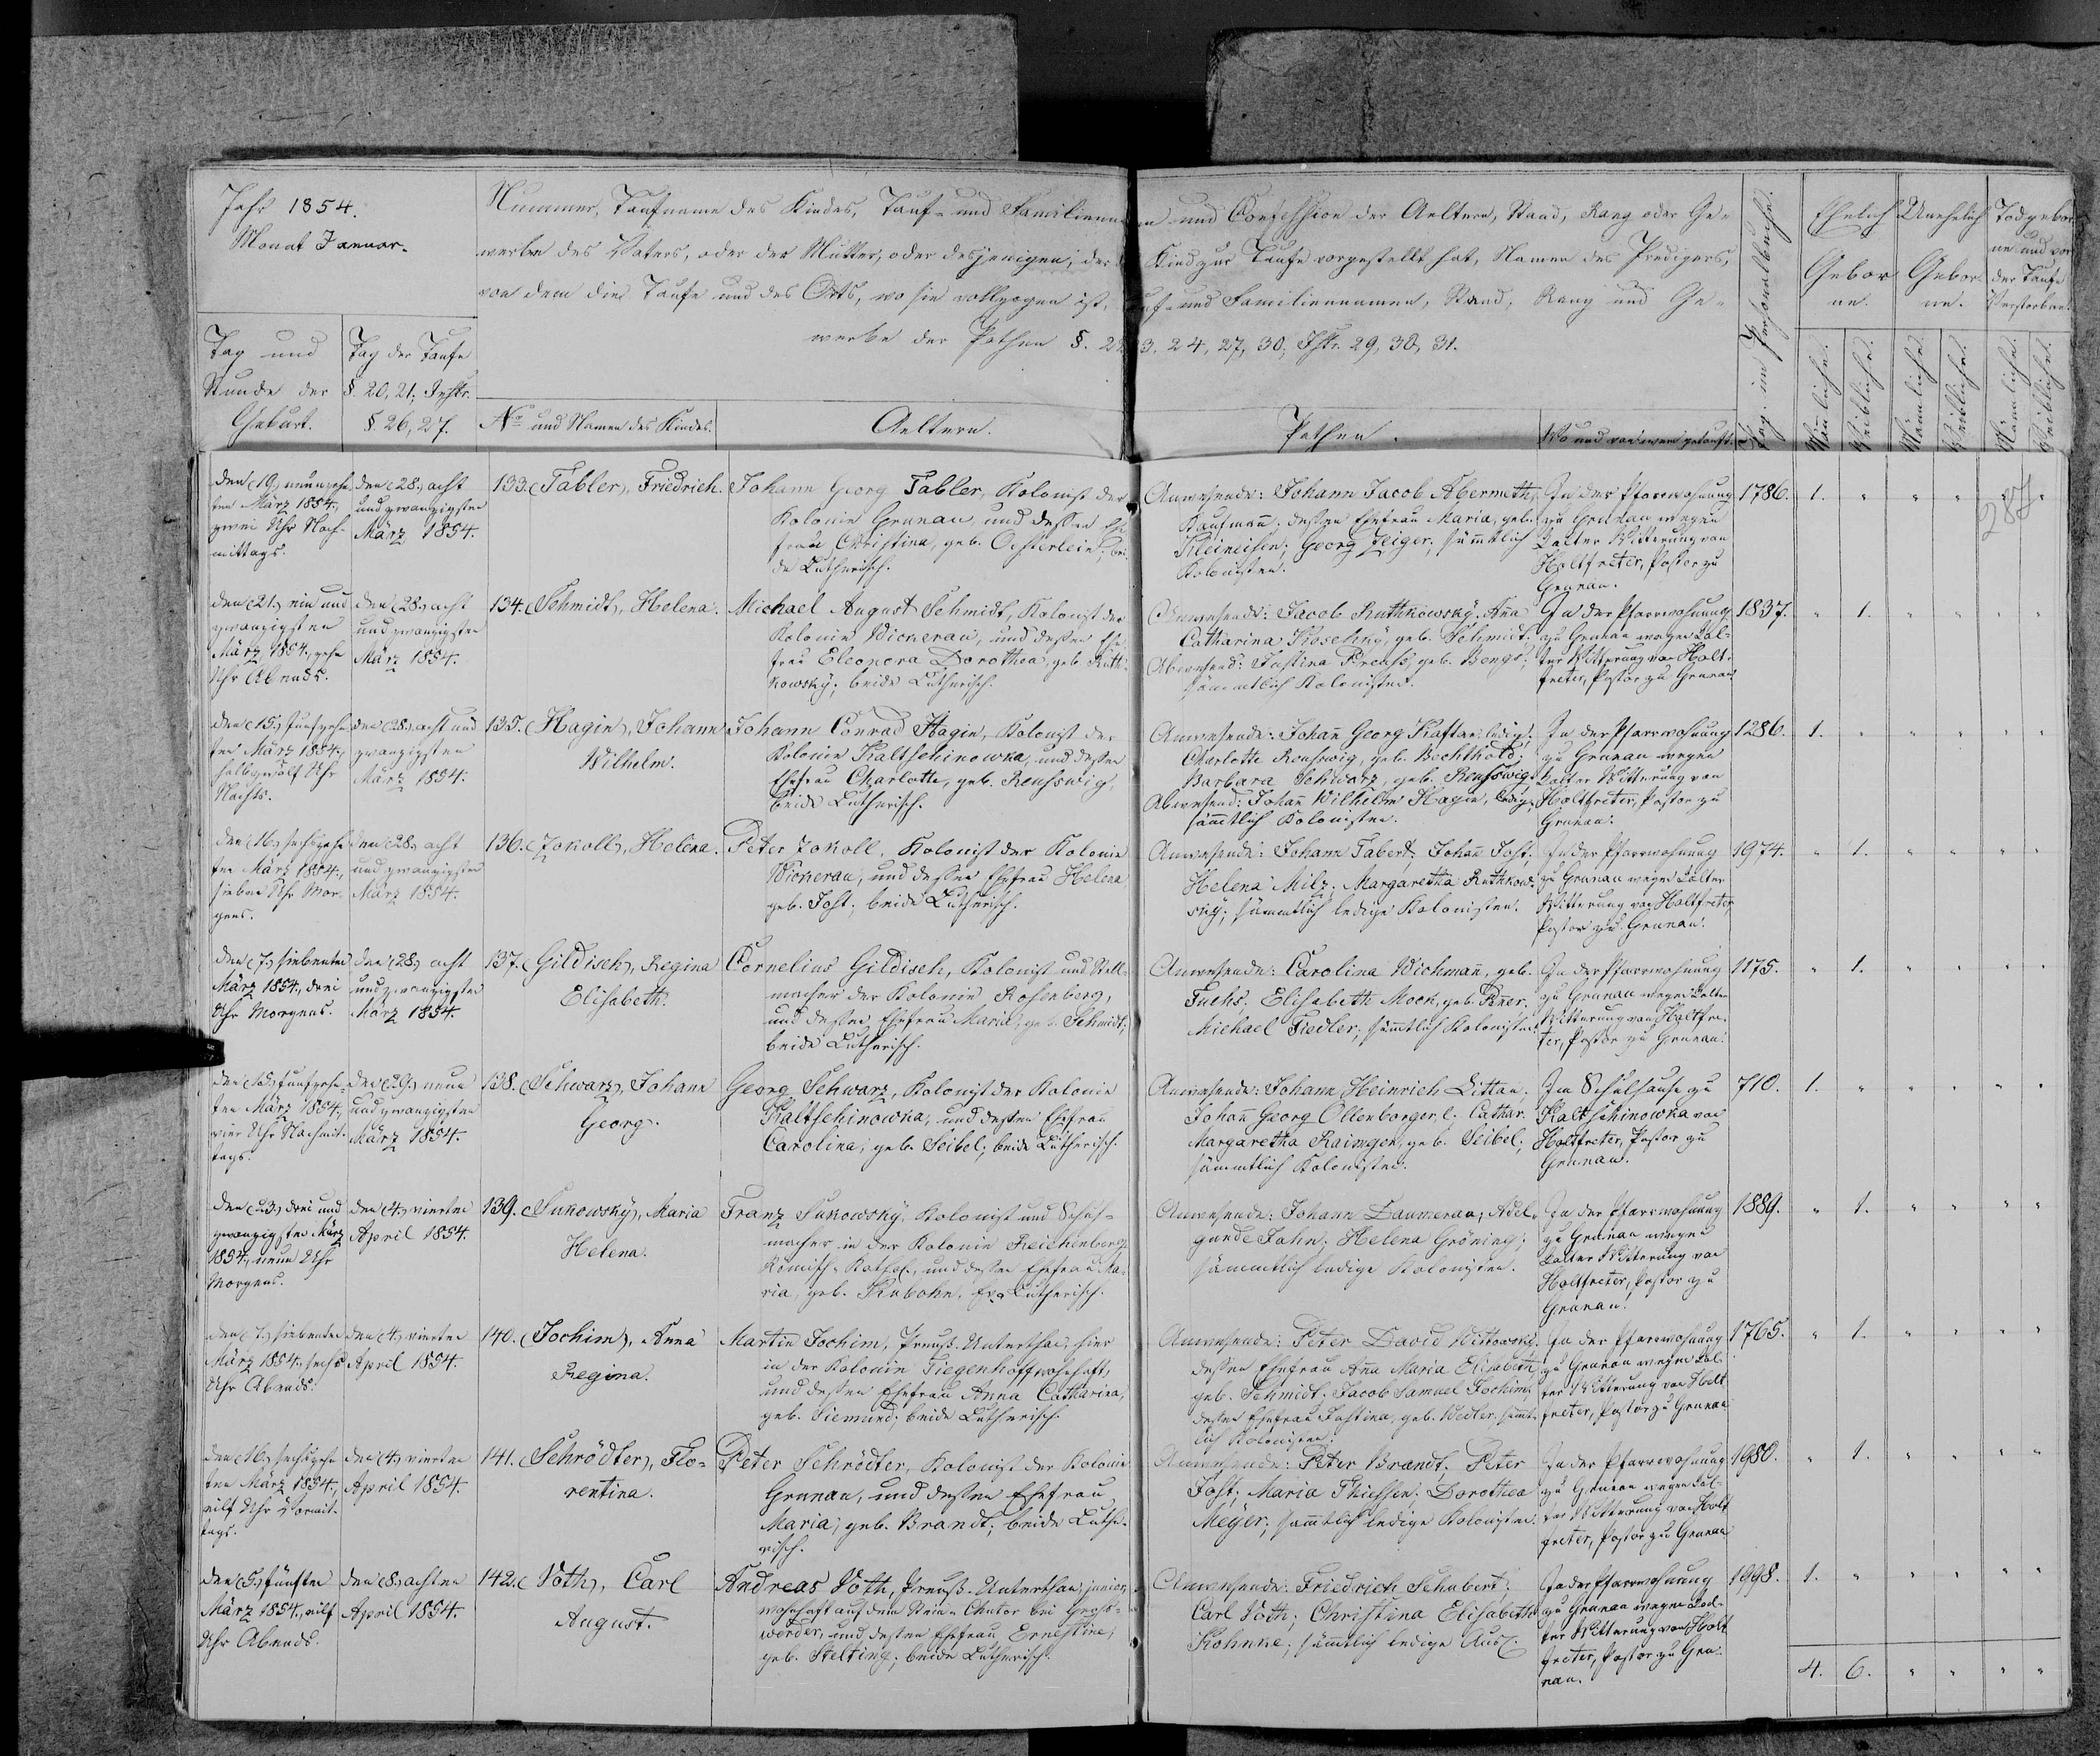 Jahr 1854.
Monat Januar.
Nummer, Taufname des Kindes, Tauf- und Familiennamen und Confession der Aeltern, Stand, Rang oder Ge-
werbe des Vaters, oder der Mutter, oder desjenigen, der das Kind zur Taufe vorgestellt hat, Namen des Predigers,
von dem die Taufe und des Orts, wo sie vollzogen ist, Tauf- und Familiennamen, Stand, Rang und Ge-
werbe der Pathen §. 22, 23, 24, 27, 30; Jstr. 29, 30, 31.
Tag und
Stunde der
Geburt.
Tag der Taufe
§. 20, 21; Jnstr.
§. 26, 27.
No und Namen des Kindes.
Aeltern.
Pathen.
Wo und von wem getauft.
Pag. im Personalbuche.
Ehelich
Gebor
ne.
Unehelich
Gebor-
ne.
Todgebor
ne und vor
der Taufe
Verstorbene.
Männliche.
Weibliche.
Männliche.
Weibliche.
Männliche.
Weibliche.
den (19.) neunzehn
ten März 1854.,
zwei Uhr Nach-
mittags.
den (28.) acht
und zwanzigsten
März 1854.
133. (Tabler), Friedrich.
Johann Georg Tabler, Kolonist der
Kolonie Grunau, und dessen Ehe
frau Christina, geb. Oesterlein; bei-
de Lutherisch.
Anwesende: Johann Jacob Abermeth,
Kaufmann; dessen Ehefrau Maria, geb.
Kleineisen; Georg Zeiger; sämmtlich
Kolonisten.
In der Pfarrwohnung
zu Grunau wegen
kalter Witterung von
Holtfreter, Pastor zu
Grunau.
1786. 1. " " " "
den (21.) ein und
zwanzigsten
März 1854., zehn
Uhr Abends.
den (28.) acht
und zwanzigsten
März 1854.
134. (Schmidt), Helena.
Michael August Schmidt, Kolonist der
Kolonie Wickerau, und dessen Ehe
frau Eleonora Dorothea, geb. Ruth-
kowsky; beide Lutherisch.
Anwesende: Jacob Ruthkowsky. Anna
Catharina Koschky, geb. Schmidt.
Abwesend: Justina Preuss, geb. Bengs;
sämmtlich Kolonisten.
In der Pfarrwohnung
zu Grunau wegen kal-
ter Witterung von Holt-
freter, Pastor zu Grunau.
1837. " 1. " " " "
den (15.) funfzehn
ten März 1854.,
halbzwölf Uhr
Nachts.
den (28.) acht und
zwanzigsten
März 1854.
135. (Hagin), Johann
Wilhelm.
Johann Conrad Hagin, Kolonist der
Kolonie Kaltschinowka, und dessen
Ehefrau Charlotte, geb. Renschwig,
beide Lutherisch.
Anwesende: Johann Georg Kaftar, ledig;
Charlotte Renschwig, geb. Bechthold;
Barbara Schwarz, geb. Renschwig.
Abwesend: Johann Wilhelm Hagin, ledig;
sämmtlich Kolonisten.
In der Pfarrwohnung
zu Grunau wegen
kalter Witterung von
Holtfreter, Pastor zu
Grunau.
1286. 1. " " " " "
den (16.) sechszehn
ten März 1854.,
sieben Uhr Mor-
gens.
den (28.) acht
und zwanzigsten
März 1854.
136. (Zokoll), Helena.
Peter Zokoll, Kolonist der Kolonie
Wickerau, und dessen Ehefrau Helena
geb. Jost; beide Lutherisch.
Anwesende: Johann Tabert; Johann Jost.
Helena Milz; Margaretha Ruthkow-
sky; sämmtlich ledige Kolonisten.
In der Pfarrwohnung
zu Grunau wegen kalter
Witterung von Holtfreter,
Pastor zu Grunau.
1974. " 1. " " " "
den (7.) siebenten
März 1854., drei
Uhr Morgens.
den (28.) acht
und zwanzigsten
März 1854.
137. (Gildisch), Regina
Elisabeth.
Cornelius Gildisch, Kolonist und Stell-
macher der Kolonie Rosenberg,
und dessen Ehefrau Maria, geb. Schmidt;
beide Lutherisch.
Anwesende: Carolina Wichmann, geb.
Fuchs. Elisabeth Mock, geb.
Michael Fiedler; sämmtlich Kolonisten.
In der Pfarrwohnung
zu Grunau wegen kalter
Witterung von Holtfre-
ter, Pastor zu Grunau.
1175. " 1. " " " "
den (15.) funfzehn
ten März 1854.,
vier Uhr Nachmit-
tags.
den (29.) neun
und zwanzigsten
März 1854.
138. (Schwarz), Johann
Georg.
Georg Schwarz, Kolonist der Kolonie
Kaltschinowka, und dessen Ehefrau
Carolina, geb. Seibel; beide Lutherisch.
Anwesende: Johann Heinrich Littau;
Johann Georg Ollenborger, l. Cathar.
Margaretha Raimger, geb. Seibel;
sämmtlich Kolonisten.
Im Schulhause zu
Kaltschinowka von
Holtfreter, Pastor zu
Grunau.
710. 1. " " " " "
den (23.) drei und
zwanzigsten März
1854., neun Uhr
Morgens.
den (4.) vierten
April 1854.
139. (Sukowsky), Maria
Helena.
Franz Sukowsky, Kolonist und Schuh-
macher in der Kolonie Reichenberg,
Römisch-Kathol., und dessen Ehefrau Ma-
ria, geb. Kubohn, Ev. Lutherisch.
Anwesende: Johann Daumerau; Adel-
gunde Jahn; Helena Gröning;
sämmtlich ledige Kolonisten.
In der Pfarrwohnung
zu Grunau wegen
kalter Witterung von
Holtfreter, Pastor zu
Grunau.
1889. " 1. " " " "
den (7.) siebenten
März 1854., sechs
Uhr Abends.
den (4.) vierten
April 1854.
140. (Jochim), Anna
Regina.
Martin Jochim, Preuß. Unterthan, hier
in der Kolonie Tiegenhoff wohnhaft,
und dessen Ehefrau Anna Catharina,
geb. Siemund; beide Lutherisch.
Anwesende: Peter David Wittowsky,
dessen Ehefrau Anna Maria Elisabeth,
geb. Schmidt; Jacob Samuel Jochim;
dessen Ehefrau Justina, geb. Wedler, sämmt-
lich Kolonisten.
In der Pfarrwohnung
zu Grunau wegen kal-
ter Witterung von Holt
freter, Pastor zu Grunau
1765. " 1. " " " "
den (16.) sechszehn
ten März 1854.,
eilf Uhr Vormit-
tags.
den (4.) vierten
April 1854.
141. (Schrödter), Flo-
rentina.
Peter Schrödter, Kolonist der Kolonie
Grunau, und dessen Ehefrau
Maria, geb. Brandt; beide Luthe-
risch.
Anwesende: Peter Brandt. Peter
Jost; Maria Thiessen; Dorothea
Meyer; sämmtlich ledige Kolonisten.
In der Pfarrwohnung
zu Grunau wegen kal-
ter Witterung von Holt
freter, Pastor zu Grunau
1980. " 1. " " " "
den (5.) fünften
März 1854., eilf
Uhr Abends.
den (8.) achten
April 1854.
142. (Voth), Carl
August.
Andreas Voth, Preuß. Unterthan, junior,
wohnhaft auf dem Stein-Chutor bei Groß-
werder, und dessen Ehefrau Ernestine,
geb. Stelting; beide Lutherisch.
Anwesende: Friedrich Schubert;
Carl Voth; Christina Elisabeth
Kohnke; sämmtlich ledige Ausl.
In der Pfarrwohnung
zu Grunau wegen kal-
ter Witterung von Holt
freter, Pastor zu Gru-
nau.
1998. 1. " " " " "
4. 6. " " " "